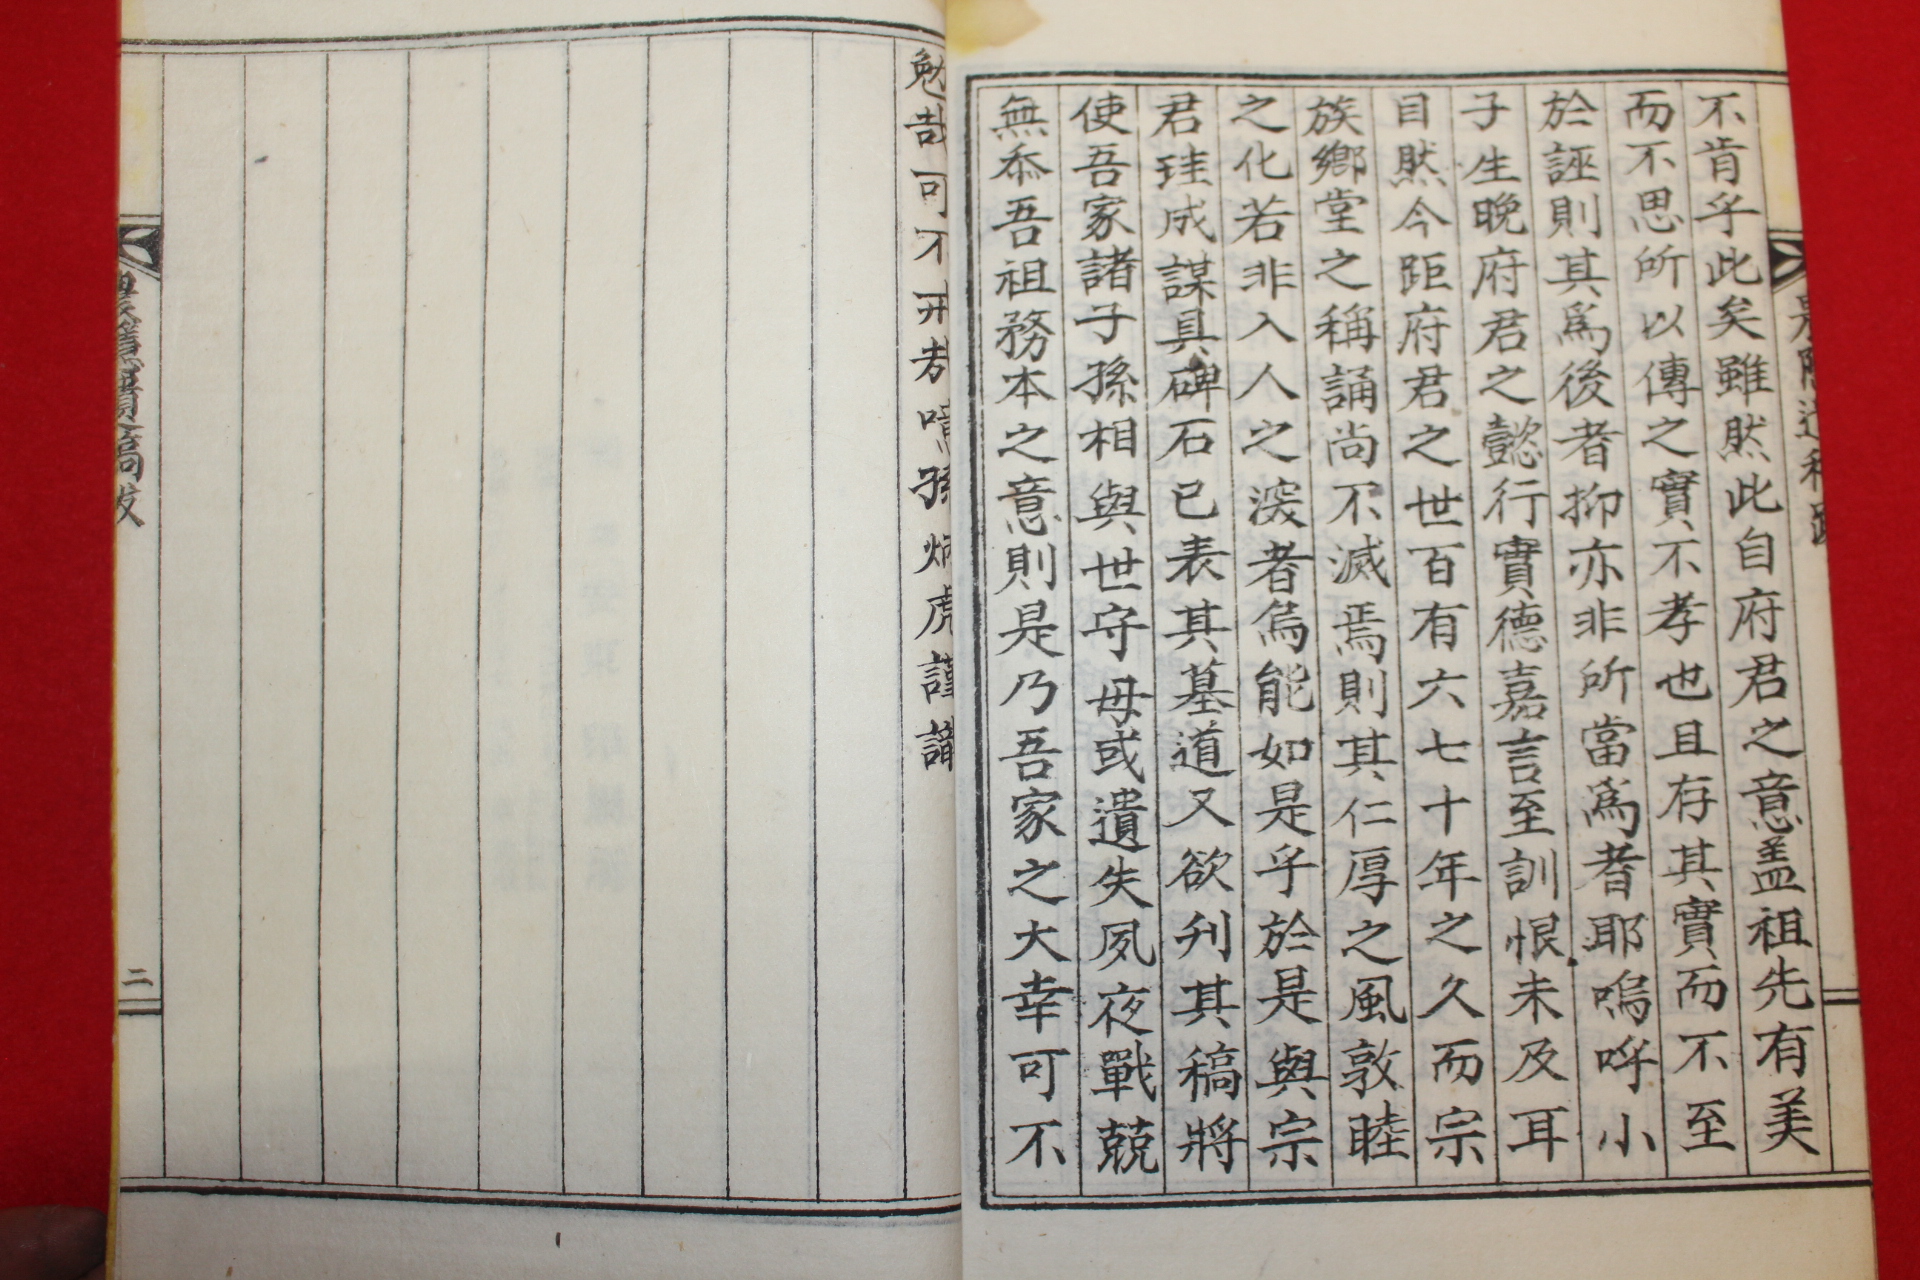 不肯乎此矣雖然此自府君之意盖祖先有美
而不思所以傳之實不孝也且存其實而不至
於誣則其爲後者抑亦非所當爲者耶嗚呼小
子生晩府君之懿行實德嘉言至訓恨未及耳
目然今距府君之世百有六七十年之久而宗
族鄕堂之稱誦尚不滅焉則其仁厚之風敦睦
之化若非入人之深者烏能如是乎於是與宗
君珪成謀具碑石已表其墓道又欲刋其稿將
使吾家諸子孫相與世守毋或遺失夙夜戰兢
無忝吾祖務本之意則是乃吾家之大幸可不
勉哉可不勗哉 孫炳虎謹識
遺稿跋
二